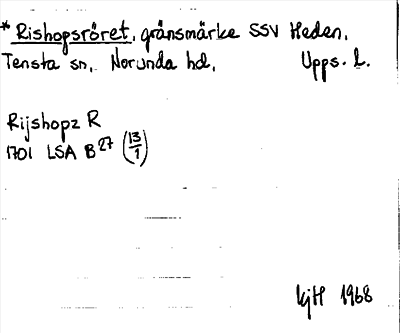 * Rishopsröret, gränsmärke SSV Heden,
Tensta sn, Norunda hd, Upps. l.
Rijshopz R
1701 LSA B27 (13/1)
KjH 1968